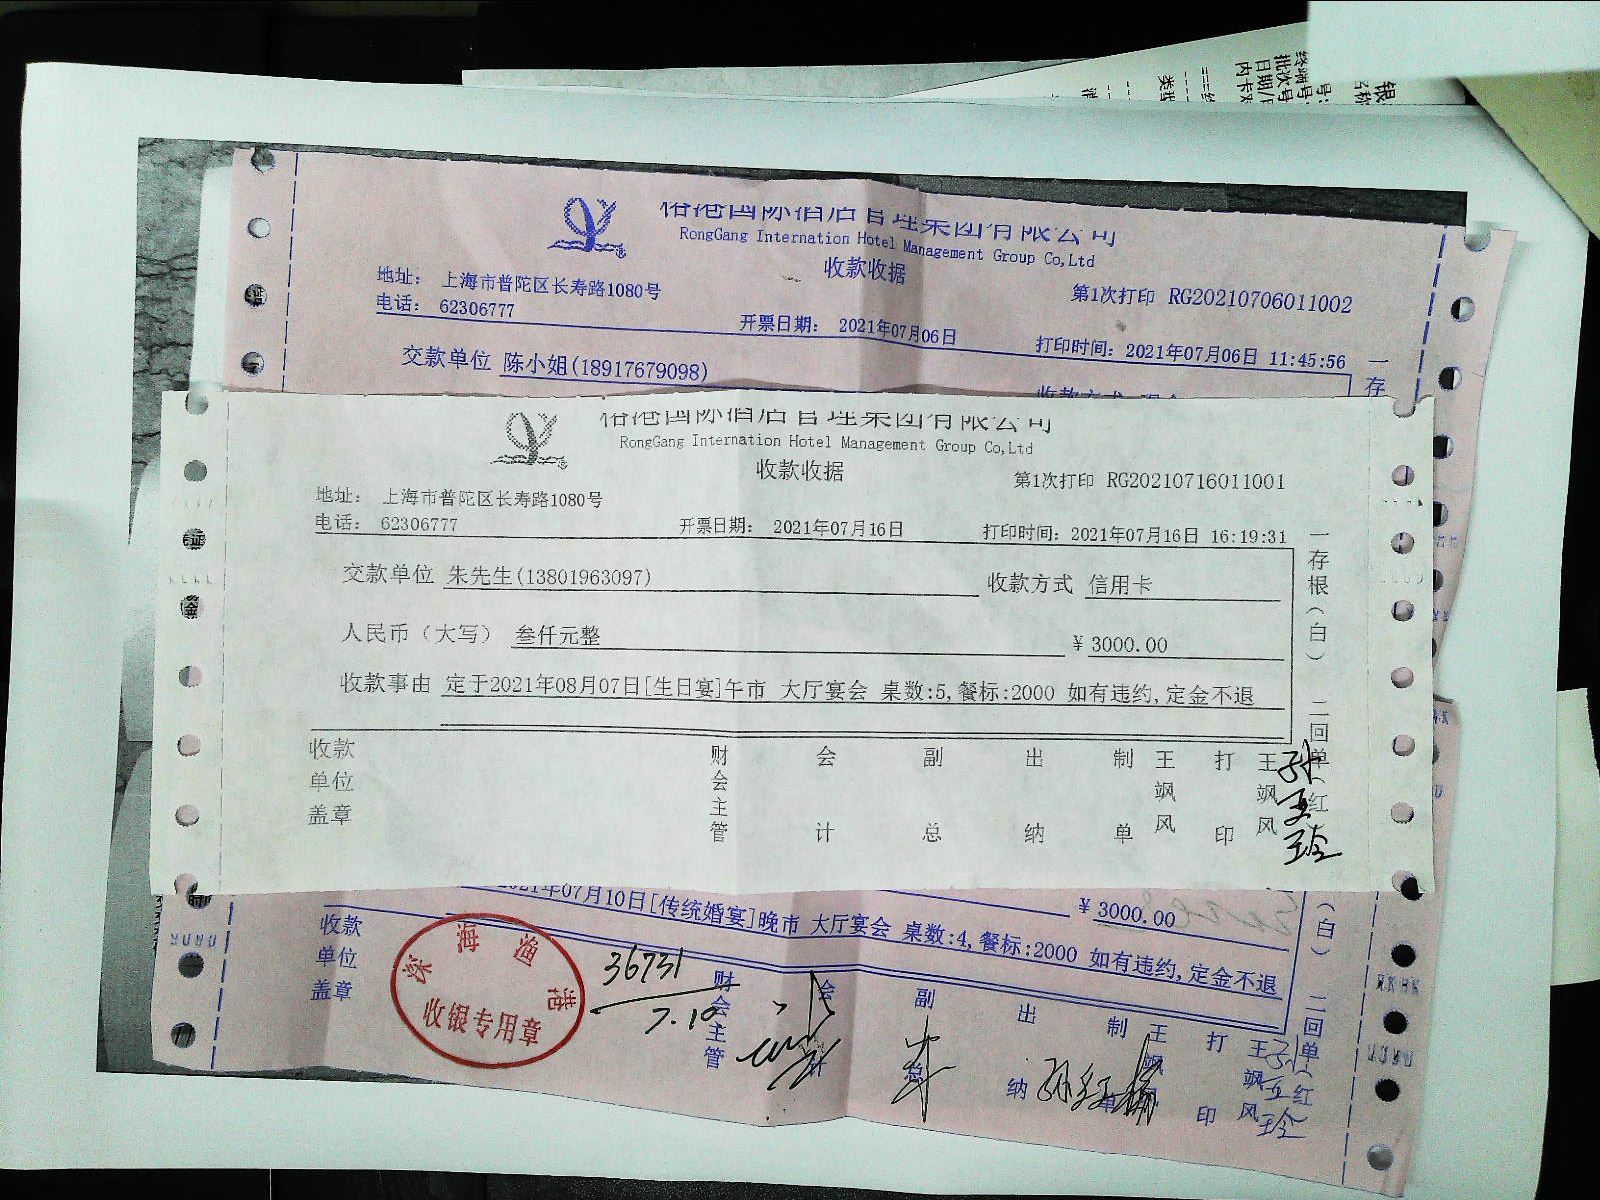 国际酒店管理集团有限公司
RongGang Internation Hotel Management Group Co,Ltd
收款收据
地址： 上海市普陀区长寿路1080号
第1次打印 RG20210706011002
电话： 62306777
开票日期： 2021年07月06日
打印时间：2021年07月06日 11:45:56
交款单位 陈小姐(18917679098)
一存
国际酒店管理集团有限公司
RongGang Internation Hotel Management Group Co,Ltd
收款收据
第1次打印 RG20210716011001
地址： 上海市普陀区长寿路1080号
电话： 62306777
开票日期： 2021年07月16日
打印时间：2021年07月16日 16:19:31
交款单位 朱先生(13801963097)
收款方式 信用卡
人民币（大写） 叁仟元整
¥ 3000.00
收款事由 定于2021年08月07日[生日宴]午市 大厅宴会 桌数:5,餐标:2000 如有违约,定金不退
一存根(白) 二回单(红
收款单位盖章
财会主管
会计
副总
出纳
制单
王飒风
打印
王飒风
¥ 3000.00
2021年07月10日[传统婚宴]晚市 大厅宴会 桌数:4,餐标:2000 如有违约,定金不退
(白) 二回单(红
收款单位盖章
深海渔港
收银专用章
36731
7.10
财会主管
会计
副总
出纳
制单
王飒风
打印
王飒风